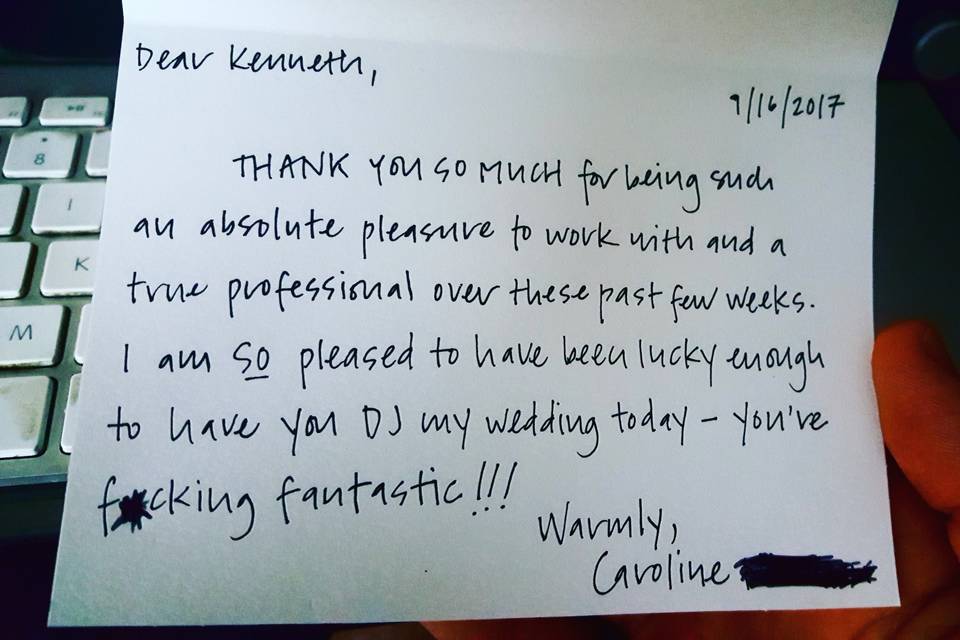 Dear Kenneth,
9/16/2017
THANK YOU SO MUCH for being such
an absolute pleasure to work with and a
true professional over these past few weeks.
I am SO pleased to have been lucky enough
to have you DJ my wedding today – you've
f*cking fantastic!!!
Warmly,
Caroline
8
I
K
M